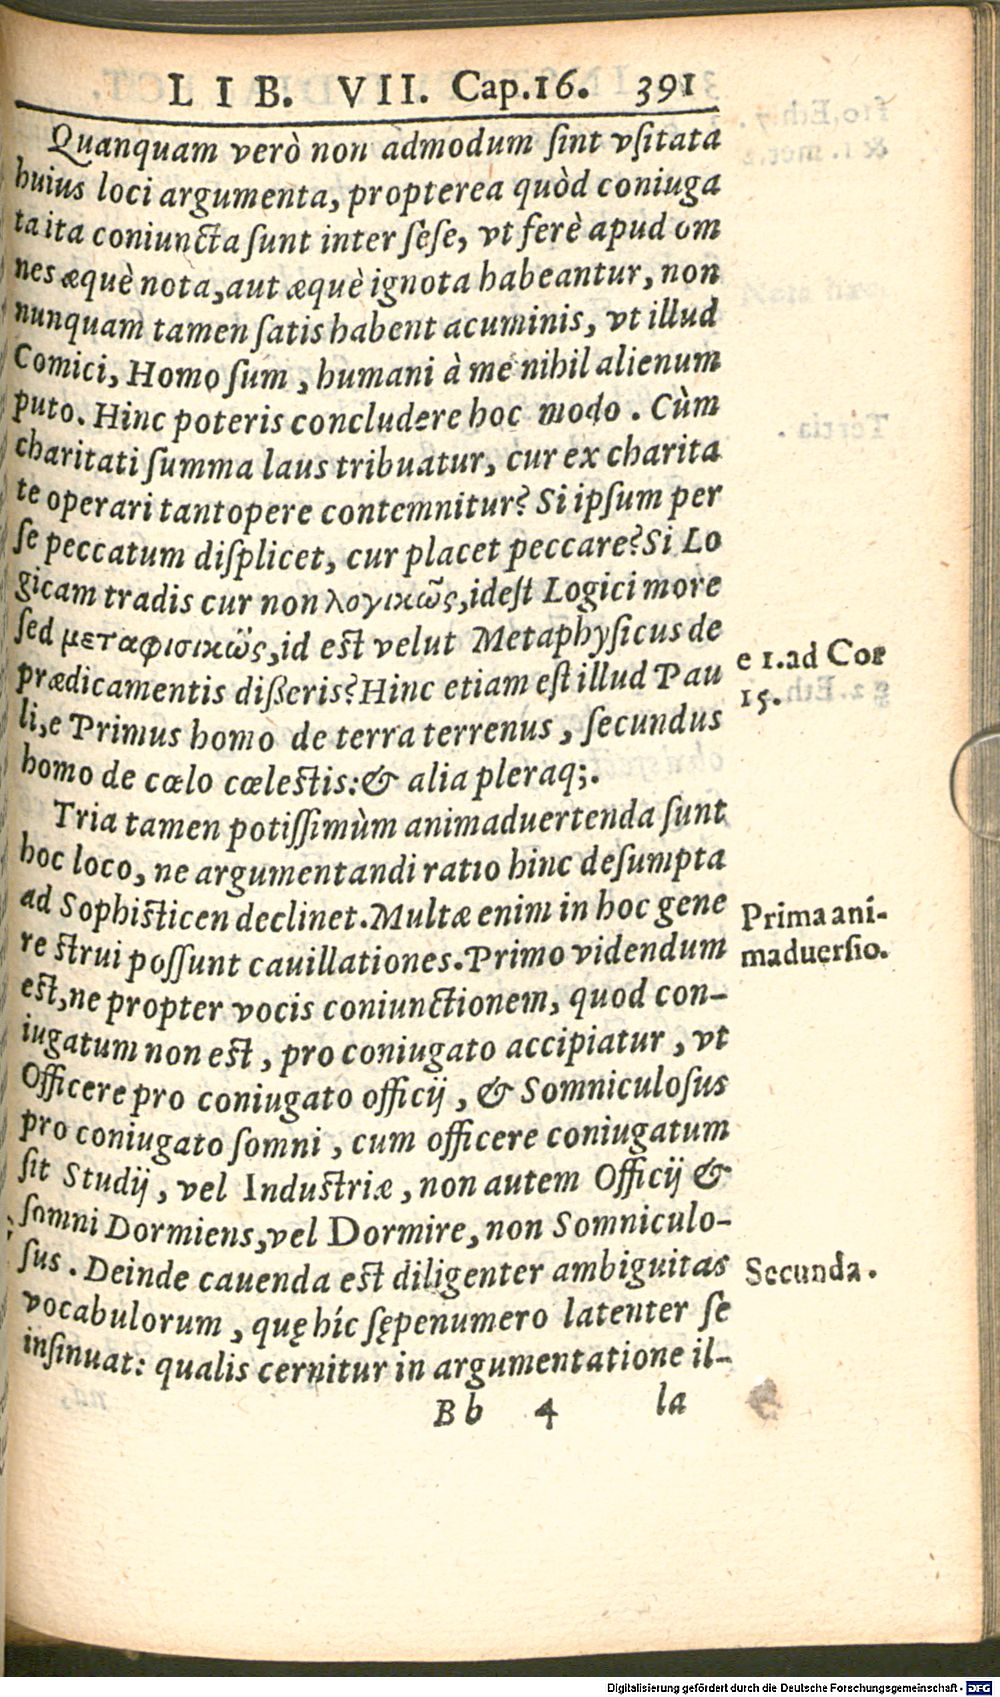 LIB. VII. Cap.16. 391
Quanquam verò non admodum ſint vſitata
huius loci argumenta, propterea quòd coniuga
ta ita coniuncta ſunt inter ſeſe, vt ferè apud om
nes æquè nota, aut æquè ignota habeantur, non
nunquam tamen ſatis habent acuminis, vt illud
Comici, Homo ſum, humani à me nihil alienum
puto. Hinc poteris concludere hoc modo. Cùm
charitati ſumma laus tribuatur, cur ex charita
te operari tantopere contemnitur? Si ipſum per
ſe peccatum diſplicet, cur placet peccare? Si Lo
gicam tradis cur non λογικῶς, ideſt Logici more
ſed μεταφισικῶς, id eſt velut Metaphyſicus de
prædicamentis diſſeris? Hinc etiam eſt illud Pau
li, e Primus homo de terra terrenus, ſecundus
e 1. ad Cor
15.
homo de cœlo cœleſtis: & alia pleraq;.
Tria tamen potiſſimùm animaduertenda ſunt
hoc loco, ne argumentandi ratio hinc deſumpta
ad Sophiſticen declinet. Multæ enim in hoc gene
re ſtrui poſſunt cauillationes. Primo videndum
Prima ani-
maduerſio.
eſt, ne propter vocis coniunctionem, quod con-
iugatum non eſt, pro coniugato accipiatur, vt
Officere pro coniugato officij, & Somniculoſus
pro coniugato ſomni, cum officere coniugatum
ſit Studij, vel Induſtriæ, non autem Officij &
ſomni Dormiens, vel Dormire, non Somniculo-
ſus. Deinde cauenda eſt diligenter ambiguitas
Secunda.
vocabulorum, quę hîc ſępenumero latenter ſe
inſinuat: qualis cernitur in argumentatione il-
Bb 4 la
Digitalisierung gefördert durch die Deutsche Forschungsgemeinschaft - DFG